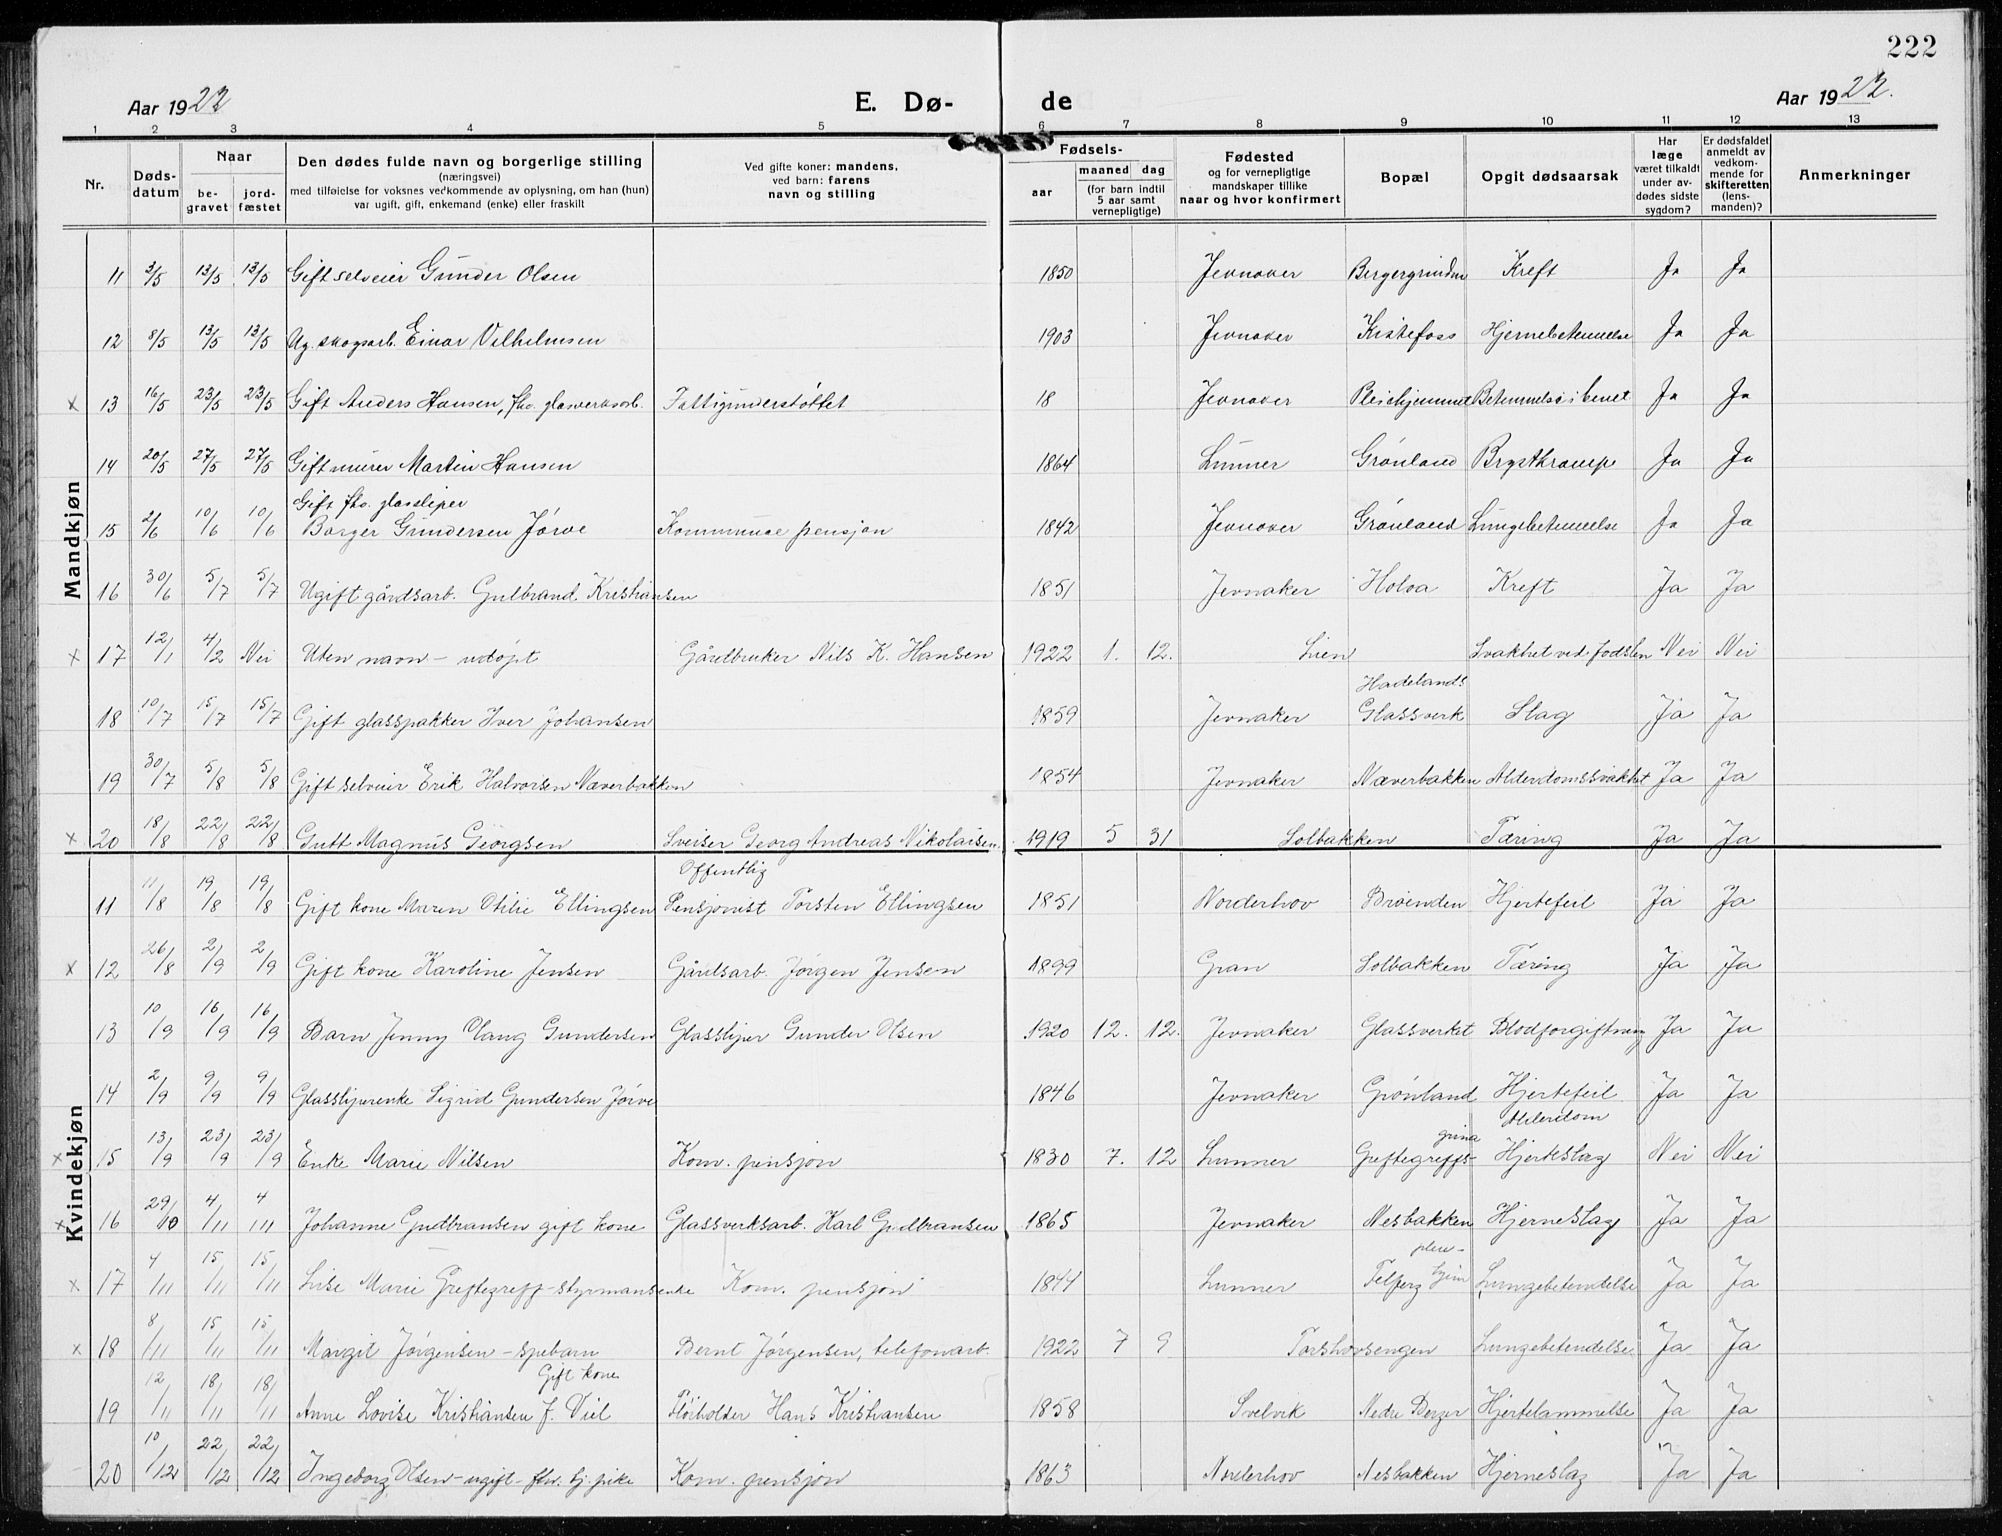 222
Aar 1922
E. Dø-
de
Aar 1922.
1 2 3 4 5 6 7 8 9 10 11 12 13
Nr.
Døds-
datum
Naar
be-
gravet
jord-
fæstet
Den dødes fulde navn og borgerlige stilling
(næringsvei)
med tilføielse for voksnes vedkommende av oplysning, om han (hun)
var ugift, gift, enkemand (enke) eller fraskilt
Ved gifte koner: mandens,
ved barn: farens
navn og stilling
Fødsels-
aar
maaned dag
(for barn indtil
5 aar samt
vernepligtige)
Fødested
og for vernepligtige
mandskaper tillike
naar og hvor konfirmert
Bopæl
Opgit dødsaarsak
Har
læge
været tilkaldt
under av-
dødes sidste
sygdom?
Er dødsfaldet
anmeldt av
vedkom-
mende for
skifteretten
(lens-
manden)?
Anmerkninger
Mandkjøn
11 3/5 13/5 13/5 Gift selveier Gunder Olsen 1850 Jevnaker Bergergrinden Kreft Ja Ja
12 8/5 13/5 13/5 Ug. skogsarb. Einar Vilhelmsen 1903 Jevnaker Kistefoss Hjernebetennelse Ja Ja
x 13 16/5 23/5 23/5 Gift Anders Hansen, fhv. glasverksarb. Fattigunderstøttet 18 Jevnaker Pleiehjemmet Betennelse i benet Ja Ja
14 20/5 27/5 27/5 Gift murer Martin Hansen 1864 Lunner Grønland Brystkrampe Ja Ja
Gift fhv. glassliper
15 2/6 10/6 10/6 Borger Gundersen Jørve Kommunee pensjon 1842 Jevnaker Grønland Lungebetennelse Ja Ja
16 30/6 5/7 5/7 Ugift gårdsarb. Gulbrand Kristiansen 1851 Jevnaker Holoa Kreft Ja Ja
x 17 12/1 4/2 Nei Uten navn - udøpt Gårdbruker Nils K. Hansen 1922 1. 12. Lien Svakhet ved fødslen Nei Nei
Hadelands
18 10/7 15/7 15/7 Gift glasspakker Iver Johansen 1859 Jevnaker Glassverk Slag Ja Ja
19 30/7 5/8 5/8 Gift selveier Erik Halvorsen Næverbakken 1854 Jevnaker Næverbakken Alderdomssvakhet Ja Ja
x 20 18/8 22/8 22/8 Gutt Magnus Georgsen Sveiser Georg Andreas Nikolaisen 1919 5 31 Solbakken Tæring Ja Ja
Kvindekjøn
Offentlig
11 11/8 19/8 19/8 Gift kone Maren Otilie Ellingsen Pensjonist Torsten Ellingsen 1851 Norderhov Brøenden Hjertefeil Ja Ja
x 12 26/8 2/9 2/9 Gift kone Karoline Jensen Gårdsarb. Jørgen Jensen 1899 Gran Solbakken Tæring Ja Ja
13 10/9 16/9 16/9 Barn Jenny Vang Gundersen Glassliper Gunder Olsen 1920 12. 12. Jevnaker Glassverket Blodforgiftning Ja Ja
14 2/9 9/9 9/9 Glassliperenke Sigrid Gundersen Jørve 1846 Jevnaker Grønland Hjertefeil Ja Ja
grina Alderdom
x 15 13/9 23/9 23/9 Enke Marie Nilsen Kom. pensjon 1830 7. 12 Lunner Greftegreffs- Hjerteslag Nei Nei
x 16 29/10 4/11 4/11 Johanne Gudbransen gift kone Glassverksarb. Karl Gudbransen 1865 Jevnaker Nesbakken Hjerneslag Ja Ja
pleie-
x 17 4/11 15/11 15/11 Lise Marie Greftegreff - styrmansenke Kom. pensjon 1844 Lunner hjem Lungebetendelse Ja Ja
x 18 8/11 15/11 15/11 Margit Jørgensen - spebarn Bernt Jørgensen, telefonarb. 1922 7 9 Torshovsengen Lungebetendelse Ja Ja
Gift kone
19 12/11 18/11 18/11 Anne Lovise Kristiansen f. Viel Fløiholder Hans Kristiansen 1858 Svelvik Nedre Berger Hjertelammelse Ja Ja
20 10/12 22/12 22/12 Ingeborg Olsen - ugift - fhv. tj. pike Kom. pensjon 1863 Norderhov Nesbakken Hjerneslag Ja Ja